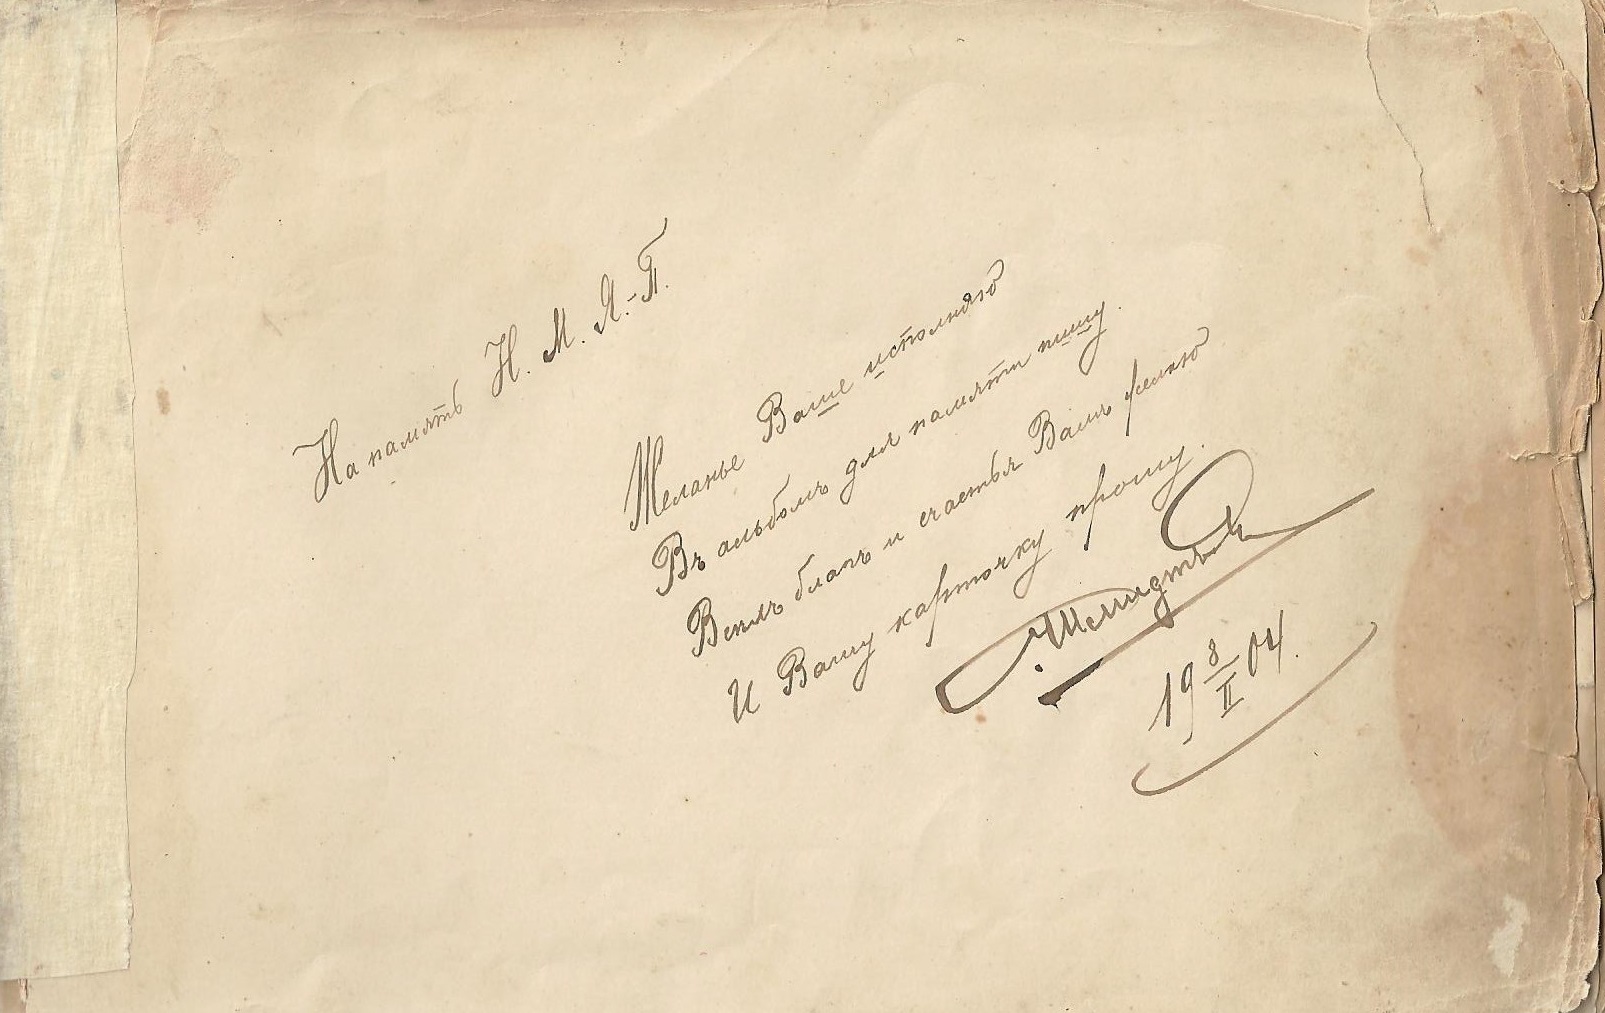 На память Н. М. Я.-П.
Желанье Ваше исполняю
Въ альбомъ для памяти пишу.
Всѣхъ благъ и счастья Вамъ желаю
И Вашу карточку прошу.
19 8/II 04.